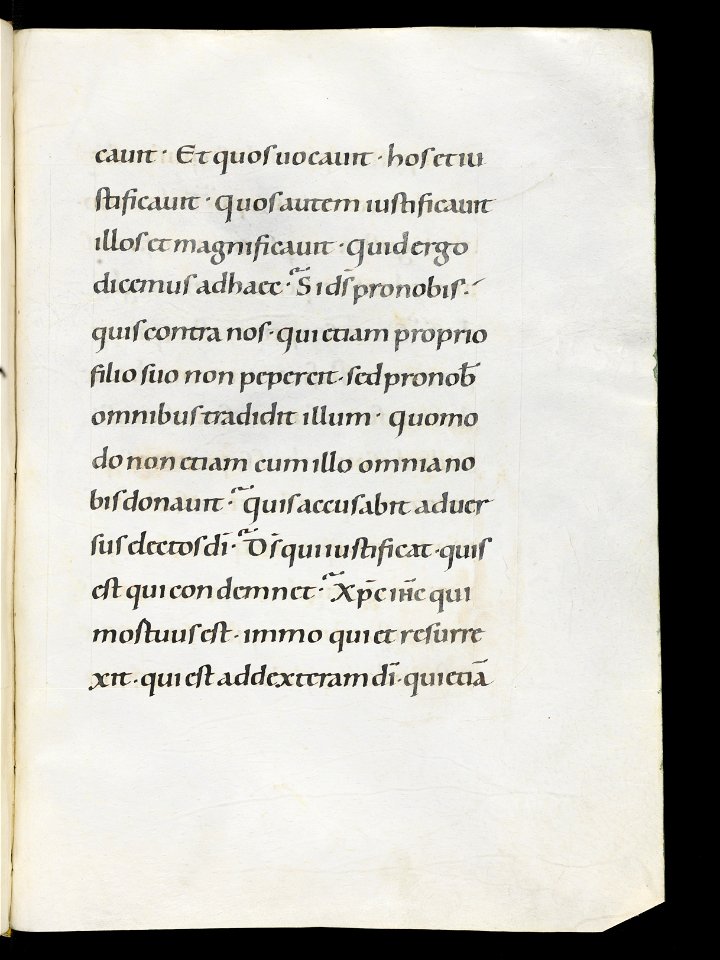 cauit · Et quos uocauit · hos et iu
stificauit · quos autem iustificauit
illos et magnificauit · quid ergo
dicemus ad haec · Si ds̄ pro nobis ·
quis contra nos · qui etiam proprio
filio suo non pepercit · sed pro nob̄
omnibus tradidit illum · quomo
do non etiam cum illo omnia no
bis donauit · quis accusabit aduer
sus electos dī · Ds̄ qui iustificat · quis
est qui condemnet · Xp̄c ih̄c qui
mortuus est · immo qui et resurre
xit · qui est ad dexteram dī · qui etiā